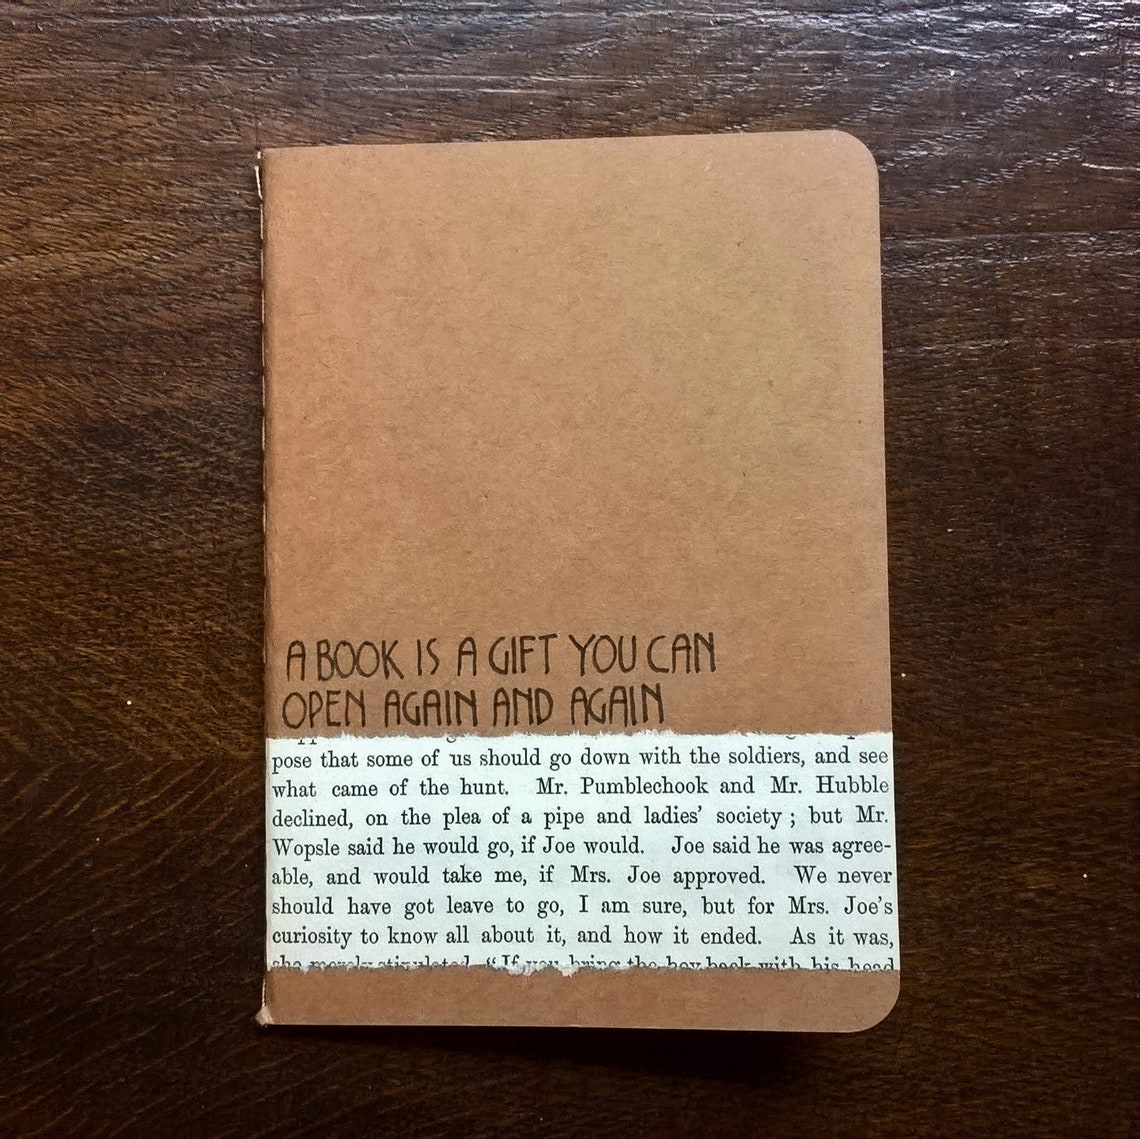 A BOOK IS A GIFT YOU CAN
OPEN AGAIN AND AGAIN
pose that some of us should go down with the soldiers, and see
what came of the hunt. Mr. Pumblechook and Mr. Hubble
declined, on the plea of a pipe and ladies' society ; but Mr.
Wopsle said he would go, if Joe would. Joe said he was agree-
able, and would take me, if Mrs. Joe approved. We never
should have got leave to go, I am sure, but for Mrs. Joe's
curiosity to know all about it, and how it ended. As it was,
she merely stipulated, “If you bring the boy back with his head